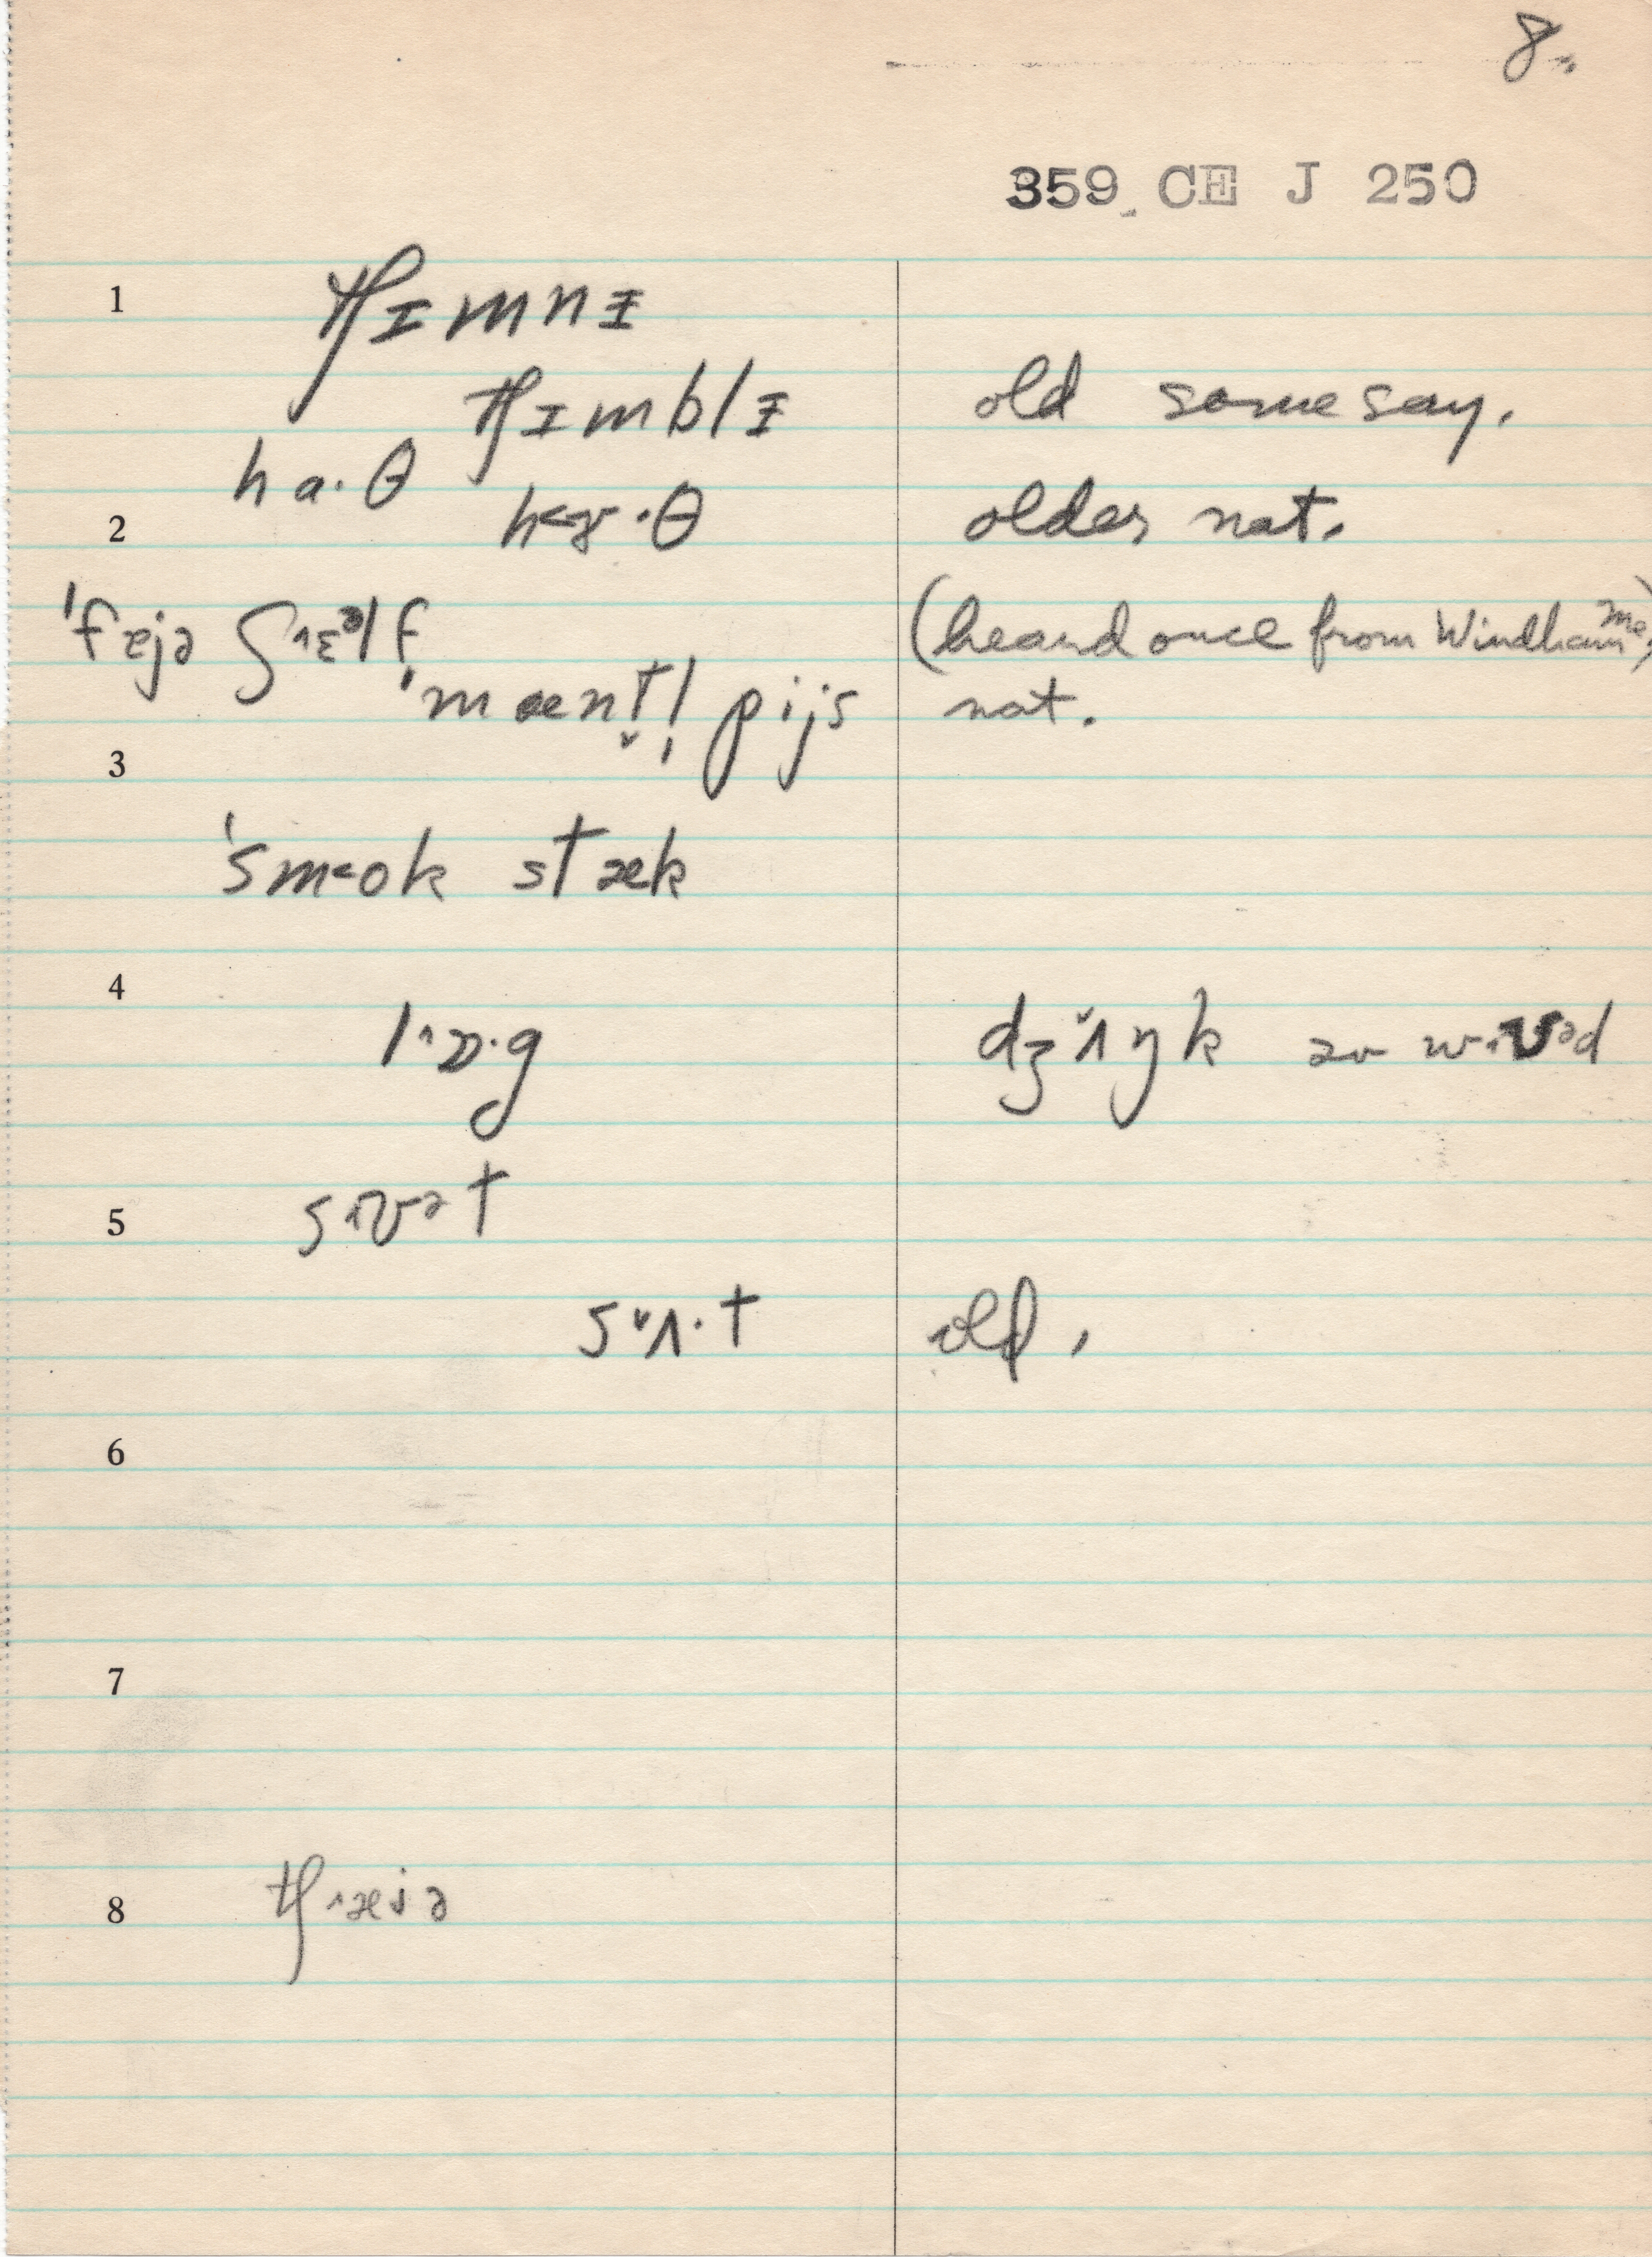 8.
359 CE J 250
1 tʃɪmnɪ
tʃɪmblɪ old some say.
ha·θ
2 h<ɤ·θ older nat.
ˈfɐjə ʃ˄ɛᵊlf (heard once from Windham Me.)
ˈmænt̬l̩ pijs nat.
3
ˈsm<ok stæk
4 l˄ɒ·g dʒ˅ʌŋk əv w˄ʊəd
5 s˄ʊət
s˅ʌ·t old,
6
7
8 tʃ˄æjə